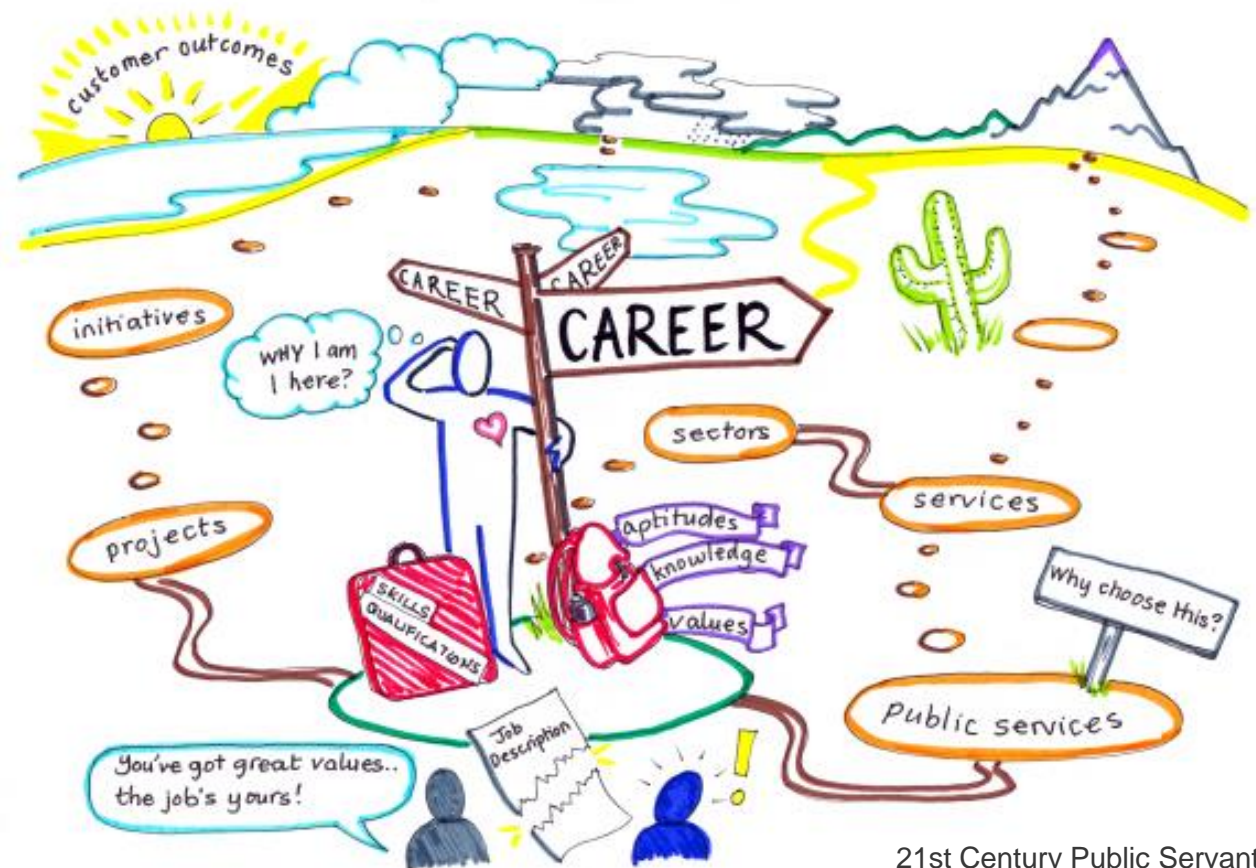 customer outcomes
CAREER
CAREER
CAREER
initiatives
WHY I am
I here?
sectors
services
projects
aptitudes
knowledge
values
SKILLS
QUALIFICATIONS
Why choose this?
Public services
Job
Description
You've got great values..
the job's yours!
!
21st Century Public Servant